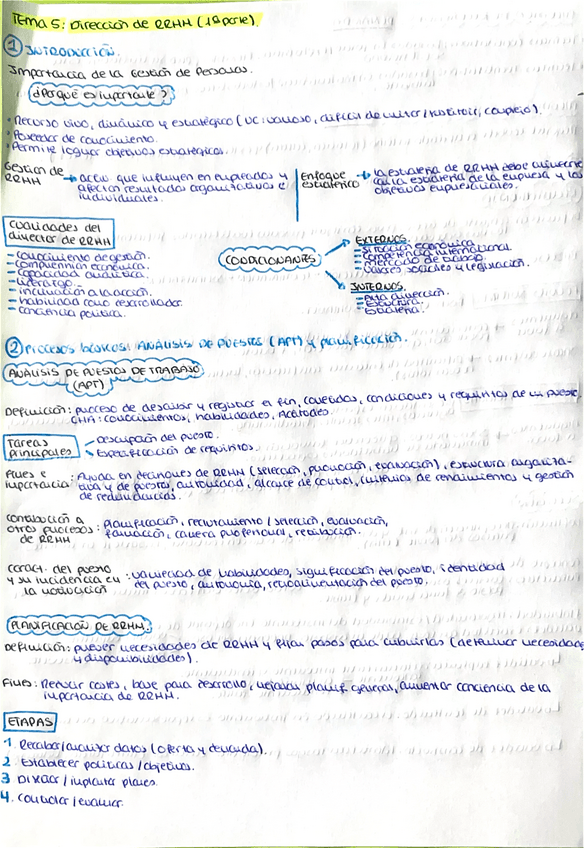 TEMA 5: Dirección de RRHH (1ª parte).
1 INTRODUCCIÓN.
Importancia de la Gestión de Personas.
¿Por qué es importante?
· Recurso vivo, dinámico y estratégico (VC: valioso, difícil de imitar/sustituir, complejo).
· Poseedor de conocimiento.
· Permite lograr objetivos estratégicos.
Gestión de RRHH → activ que influyen en empleados y
afectan resultados organizativos e
individuales.
Enfoque estratégico → la estrategia de RRHH debe
con la estrategia de la empresa y los
objetivos empresariales.
Cualidades del
director de RRHH
- conocimiento de gestión.
- comprensión económica.
- capacidad analítica.
- liderazgo.
- inclinación a la acción.
- habilidad como desarrollador.
- conciencia política.
CONDICIONANTES
EXTERNOS
- situación económica
- competencia internacional
- mercado de trabajo
- valores sociales y legislación.
INTERNOS
- alta dirección.
- estructura.
- estrategia.
2 Procesos básicos: ANÁLISIS DE PUESTOS (APT) y planificación.
ANÁLISIS DE PUESTOS DE TRABAJO
(APT)
Definición: proceso de describir y registrar el fin, cometidos, condiciones y requisitos de un puesto
CHA: conocimientos, habilidades, actitudes.
Tareas
principales
- Descripción del puesto.
- Especificación de requisitos.
Fines e
importancia: Ayuda en decisiones de RRHH (selección, promoción, formación), estructura organiza-
tiva y de puestos, autoridad, alcance de control, criterios de rendimientos y gestión
de redundancias.
Contribución a
otros procesos
de RRHH: planificación, reclutamiento/selección, evaluación,
formación, carrera profesional, retribución.
Caract. del puesto
y su incidencia en
la motivación: variedad de habilidades, significación del puesto, identidad
del puesto, autonomía, retroalimentación del puesto.
PLANIFICACIÓN DE RRHH:
Definición: prever necesidades de RRHH y fijar pasos para cubrirlas (determinar necesidades
y disponibilidades).
Fines: Reducir costes, base para desarrollo, mejorar planif. general, aumentar conciencia de la
importancia de RRHH.
ETAPAS
1. Recabar/analizar datos (oferta y demanda).
2. Establecer políticas/objetivos.
3. Diseñar/implantar planes.
4. Controlar/evaluar.